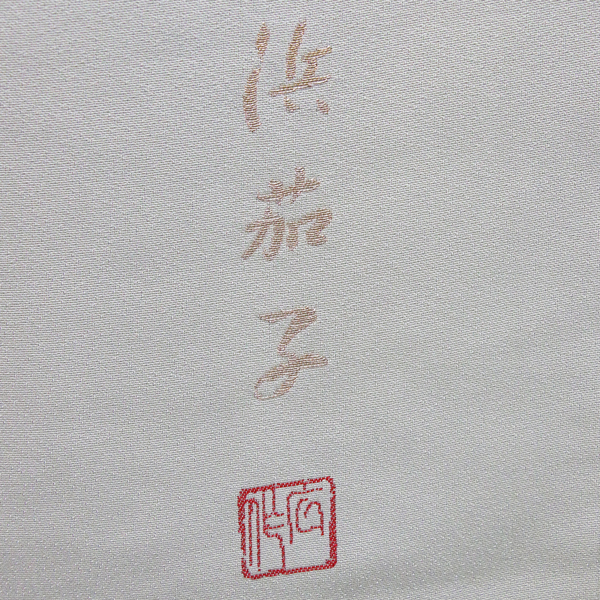 浜茄子